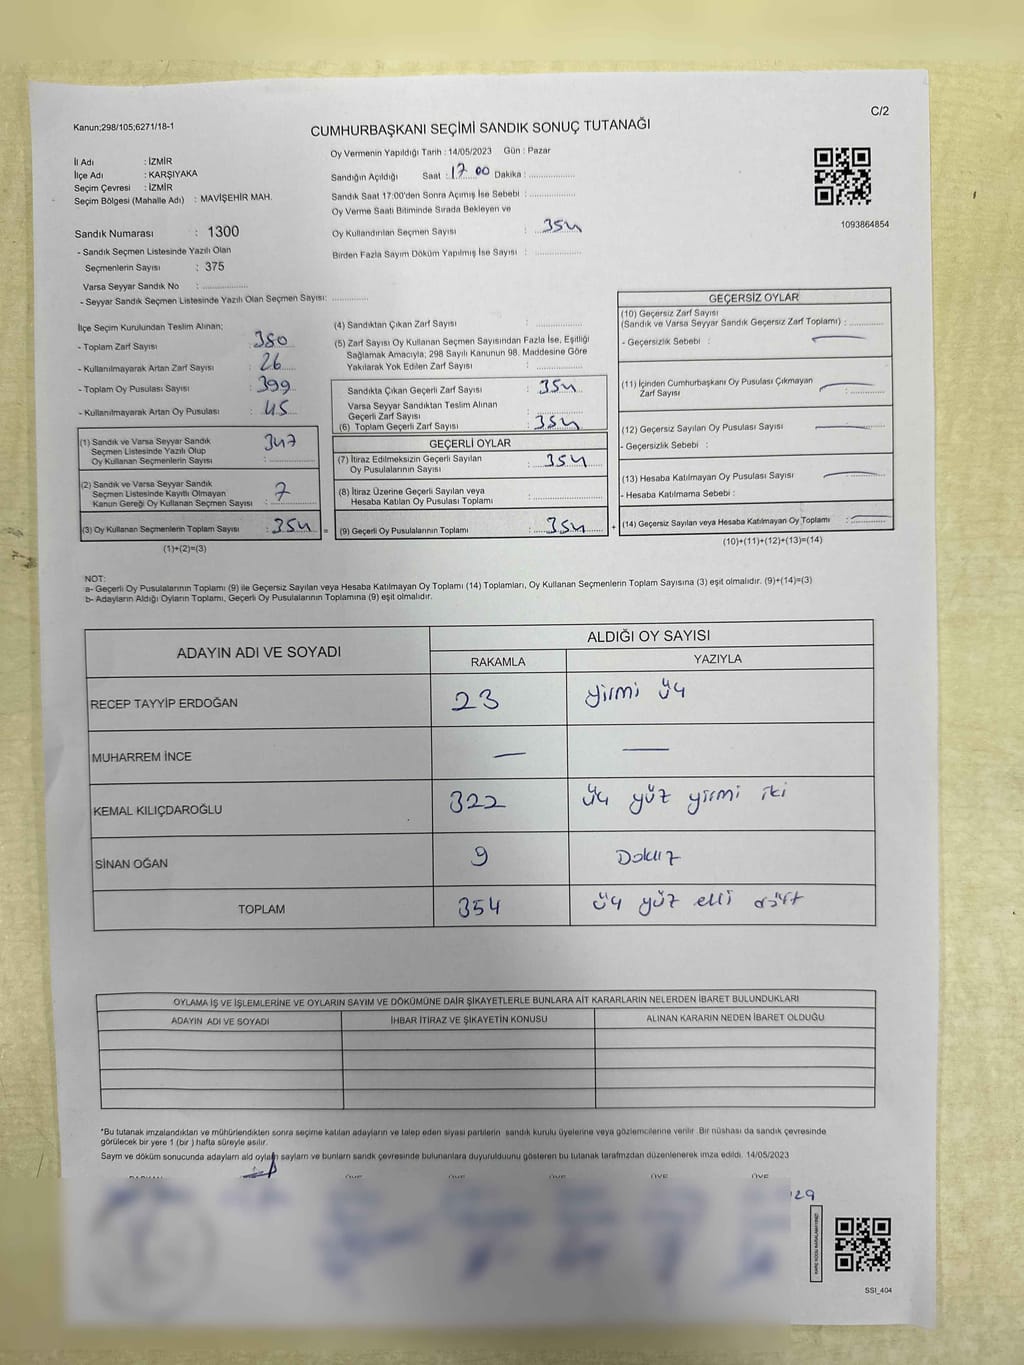 C/2
Kanun;298/105;6271/18-1
CUMHURBAŞKANI SEÇİMİ SANDIK SONUÇ TUTANAĞI
İl Adı : İZMİR
İlçe Adı : KARŞIYAKA
Seçim Çevresi : İZMİR
Seçim Bölgesi (Mahalle Adı) : MAVİŞEHİR MAH.
Sandık Numarası : 1300
- Sandık Seçmen Listesinde Yazılı Olan
Seçmenlerin Sayısı : 375
Varsa Seyyar Sandık No : ..................
- Seyyar Sandık Seçmen Listesinde Yazılı Olan Seçmen Sayısı: ..............
Oy Vermenin Yapıldığı Tarih : 14/05/2023 Gün : Pazar
Sandığın Açıldığı Saat : 17 00 Dakika : ..................
Sandık Saat 17:00'den Sonra Açımış İse Sebebi : ..................
Oy Verme Saati Bitiminde Sırada Bekleyen ve
Oy Kullandırılan Seçmen Sayısı : 354
Birden Fazla Sayım Döküm Yapılmış İse Sayısı : ..................
1093864854
İlçe Seçim Kurulundan Teslim Alınan;
- Toplam Zarf Sayısı : 380
- Kullanılmayarak Artan Zarf Sayısı : 26
- Toplam Oy Pusulası Sayısı : 399
- Kullanılmayarak Artan Oy Pusulası : 45
(1) Sandık ve Varsa Seyyar Sandık
Seçmen Listesinde Yazılı Olup
Oy Kullanan Seçmenlerin Sayısı : 347
(2) Sandık ve Varsa Seyyar Sandık
Seçmen Listesinde Kayıtlı Olmayan
Kanun Gereği Oy Kullanan Seçmen Sayısı : 7
(3) Oy Kullanan Seçmenlerin Toplam Sayısı : 354 =
(1)+(2)=(3)
(4) Sandıktan Çıkan Zarf Sayısı : ..............
(5) Zarf Sayısı Oy Kullanan Seçmen Sayısından Fazla İse, Eşitliği
Sağlamak Amacıyla; 298 Sayılı Kanunun 98. Maddesine Göre
Yakılarak Yok Edilen Zarf Sayısı : ..............
Sandıkta Çıkan Geçerli Zarf Sayısı : 354
Varsa Seyyar Sandıktan Teslim Alınan
Geçerli Zarf Sayısı : ..............
(6) Toplam Geçerli Zarf Sayısı : 354
GEÇERLİ OYLAR
(7) İtiraz Edilmeksizin Geçerli Sayılan
Oy Pusulalarının Sayısı : 354
(8) İtiraz Üzerine Geçerli Sayılan veya
Hesaba Katılan Oy Pusulası Toplamı : ..............
(9) Geçerli Oy Pusulalarının Toplamı : 354 +
GEÇERSİZ OYLAR
(10) Geçersiz Zarf Sayısı
(Sandık ve Varsa Seyyar Sandık Geçersiz Zarf Toplamı) : ..........
- Geçersizlik Sebebi : —
(11) İçinden Cumhurbaşkanı Oy Pusulası Çıkmayan
Zarf Sayısı : —
(12) Geçersiz Sayılan Oy Pusulası Sayısı : —
- Geçersizlik Sebebi :
(13) Hesaba Katılmayan Oy Pusulası Sayısı : —
- Hesaba Katılmama Sebebi :
(14) Geçersiz Sayılan veya Hesaba Katılmayan Oy Toplamı : —
(10)+(11)+(12)+(13)=(14)
NOT:
a- Geçerli Oy Pusulalarının Toplamı (9) ile Geçersiz Sayılan veya Hesaba Katılmayan Oy Toplamı (14) Toplamları, Oy Kullanan Seçmenlerin Toplam Sayısına (3) eşit olmalıdır. (9)+(14)=(3)
b- Adayların Aldığı Oyların Toplamı, Geçerli Oy Pusulalarının Toplamına (9) eşit olmalıdır.
ADAYIN ADI VE SOYADI
ALDIĞI OY SAYISI
RAKAMLA YAZIYLA
RECEP TAYYİP ERDOĞAN 23 yirmi üç
MUHARREM İNCE — —
KEMAL KILIÇDAROĞLU 322 üç yüz yirmi iki
SİNAN OĞAN 9 Dokuz
TOPLAM 354 üç yüz elli dört
OYLAMA İŞ VE İŞLEMLERİNE VE OYLARIN SAYIM VE DÖKÜMÜNE DAİR ŞİKAYETLERLE BUNLARA AİT KARARLARIN NELERDEN İBARET BULUNDUKLARI
ADAYIN ADI VE SOYADI İHBAR İTİRAZ VE ŞİKAYETİN KONUSU ALINAN KARARIN NEDEN İBARET OLDUĞU
*Bu tutanak imzalandıktan ve mühürlendikten sonra seçime katılan adayların ve talep eden siyasi partilerin sandık kurulu üyelerine veya gözlemcilerine verilir. Bir nüshası da sandık çevresinde
görülecek bir yere 1 (bir ) hafta süreyle asılır.
Sayım ve döküm sonucunda adayların ald oyların sayların ve bunların sandk çevresinde bulunanlara duyurulduunu gösteren bu tutanak tarafmzdan düzenlenerek imza edildi. 14/05/2023
ÜYE ÜYE ÜYE ÜYE ÜYE
29
SSI_404